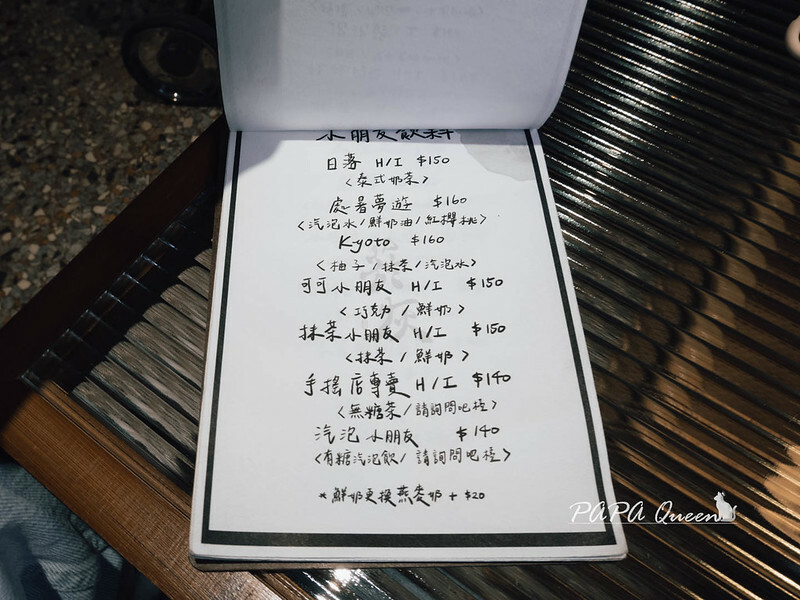 小朋友飲料
日落 H/I $150
<泰式奶茶>
處暑夢遊 $160
<汽泡水/鮮奶油/紅櫻桃>
Kyoto $160
<柚子/抹茶/汽泡水>
可可小朋友 H/I $150
<巧克力/鮮奶>
抹茶小朋友 H/I $150
<抹茶/鮮奶>
手搖店專賣 H/I $140
<無糖茶/請詢問吧檯>
汽泡小朋友 $140
<有糖汽泡飲/請詢問吧檯>
*鮮奶更換燕麥奶 + $20
PAPA Queen